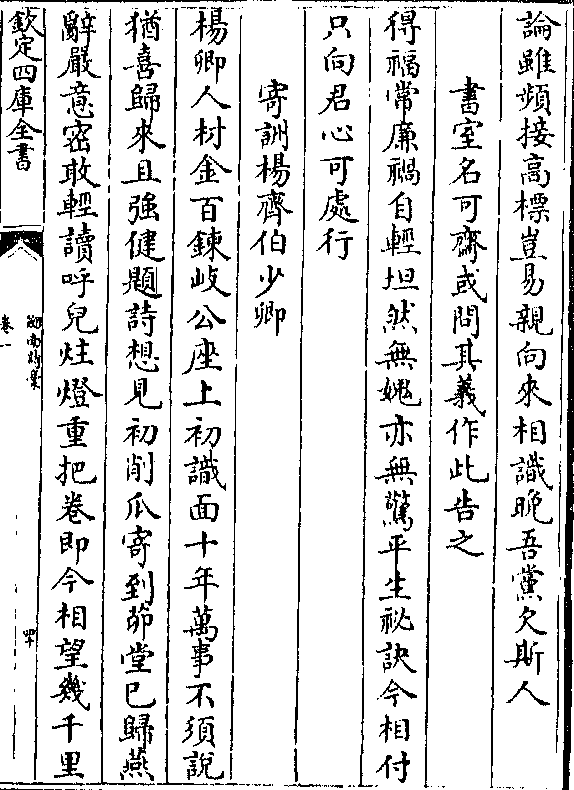 論雖頻接高標豈易親向來相識晩吾黨欠斯人
書室名可齋或問其義作此告之
得禍常廉禍自輕坦然無媿亦無驚平生祕訣今相付
只向君心可處行
寄詶楊齊伯少卿
楊卿人材金百鍊岐公座上初識面十年萬事不須說
猶喜歸來且強健題詩想見初削瓜寄到茆堂已歸燕
辭嚴意密敢輕讀呼兒炷燈重把卷即今相望幾千里
欽定四庫全書
劒南詩稾
卷一